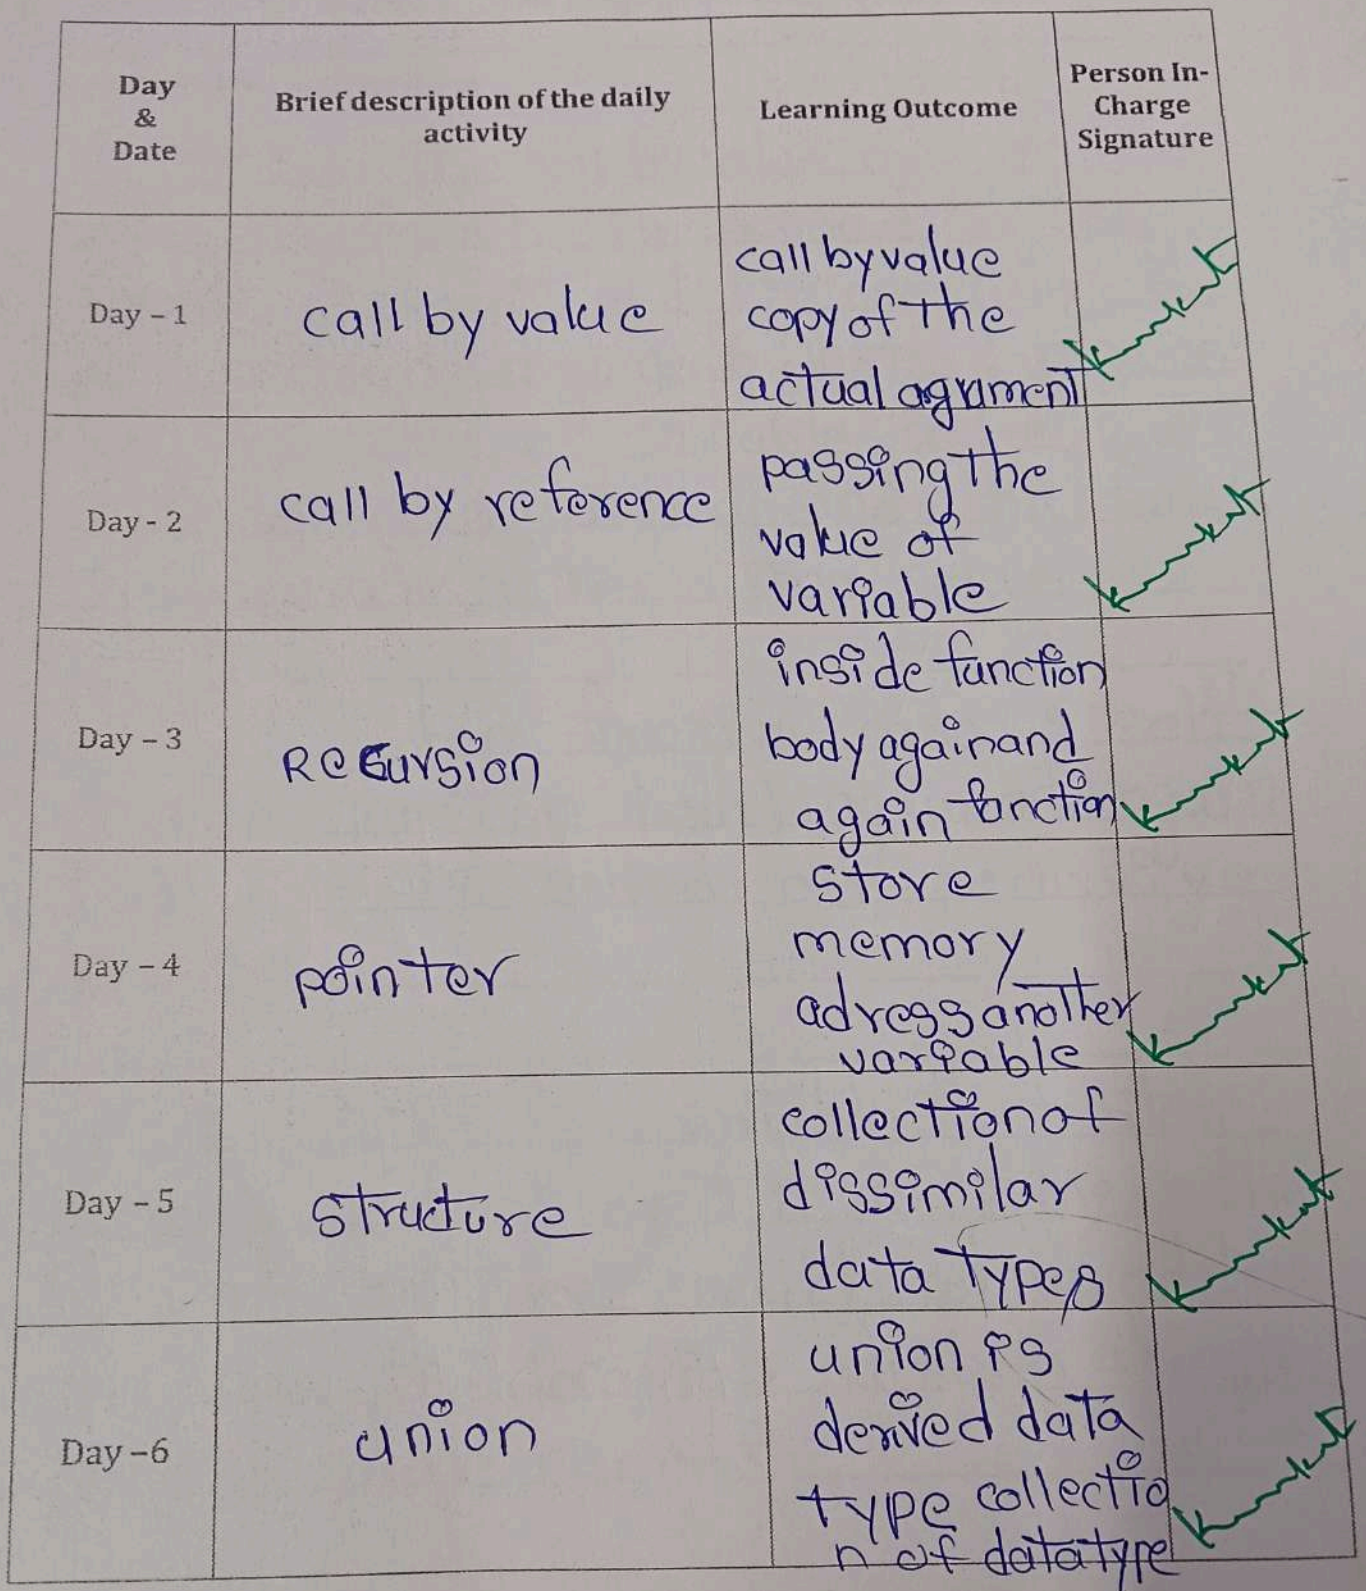 Day
&
Date
Brief description of the daily
activity
Learning Outcome
Person In-
Charge
Signature
Day – 1
call by value
call by value
copy of the
actual agrument
Day - 2
call by reference
passing the
value of
variable
Day – 3
Recursion
inside function
body again and
again function
Day – 4
pointer
store
memory
adress another
variable
Day – 5
structure
collection of
dissimilar
data types
Day –6
union
union is
derived data
type collectio
n of datatype